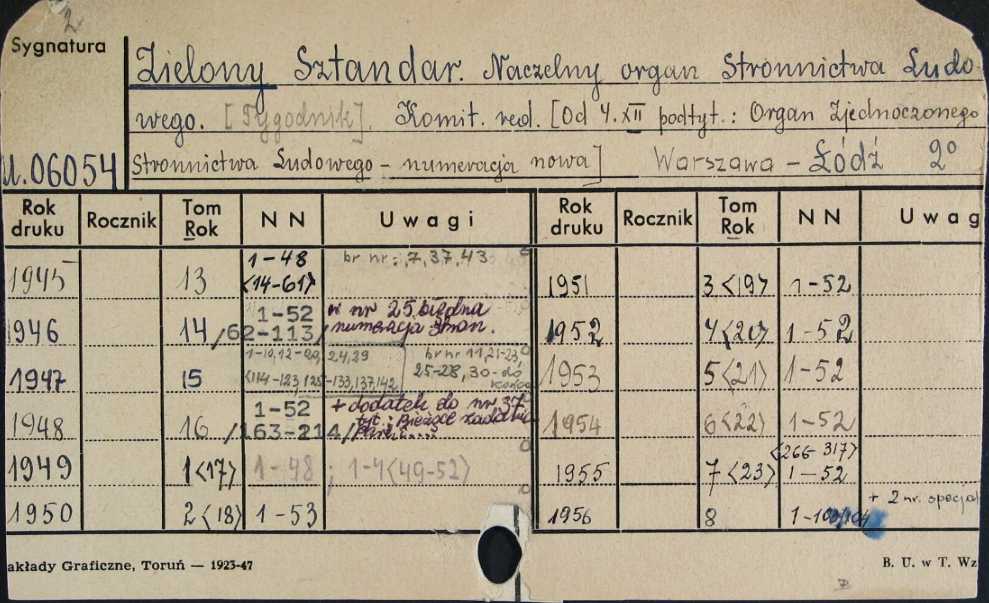 2.
Sygnatura
Zielony Sztandar. Naczelny organ Stronnictwa Ludo-
wego. [Tygodnik]. Komit. red. [Od 4.XII podtyt.: Organ Zjednoczonego
Stronnictwa Ludowego - numeracja nowa] Warszawa - Łódź 2°
U.06054
Rok druku Rocznik Tom Rok NN Uwagi Rok druku Rocznik Tom Rok NN Uwag
1945 13 1-48 <14-61> br nr: 7, 37, 43
1946 14 1-52 /62-113/ w nr 25 błędna numeracja stron.
1947 15 1-10, 12-20, 24, 29 <114-123, 125-133, 137, 142 br nr 11, 21-23, 25-28, 30-do końca
1948 16 1-52 /163-214/ + dodatek do nr 37 tyt: Bieżące zadania
1949 1<17> 1-48; 1-4<49-52>
1950 2<18> 1-53
1951 3<19> 1-52
1952 4<20> 1-52
1953 5<21> 1-52
1954 6<22> 1-52
1955 7<23> <266-317> 1-52
1956 8 1-104 + 2 nr. specjal
akłady Graficzne, Toruń — 1923-47
B. U. w T. Wz